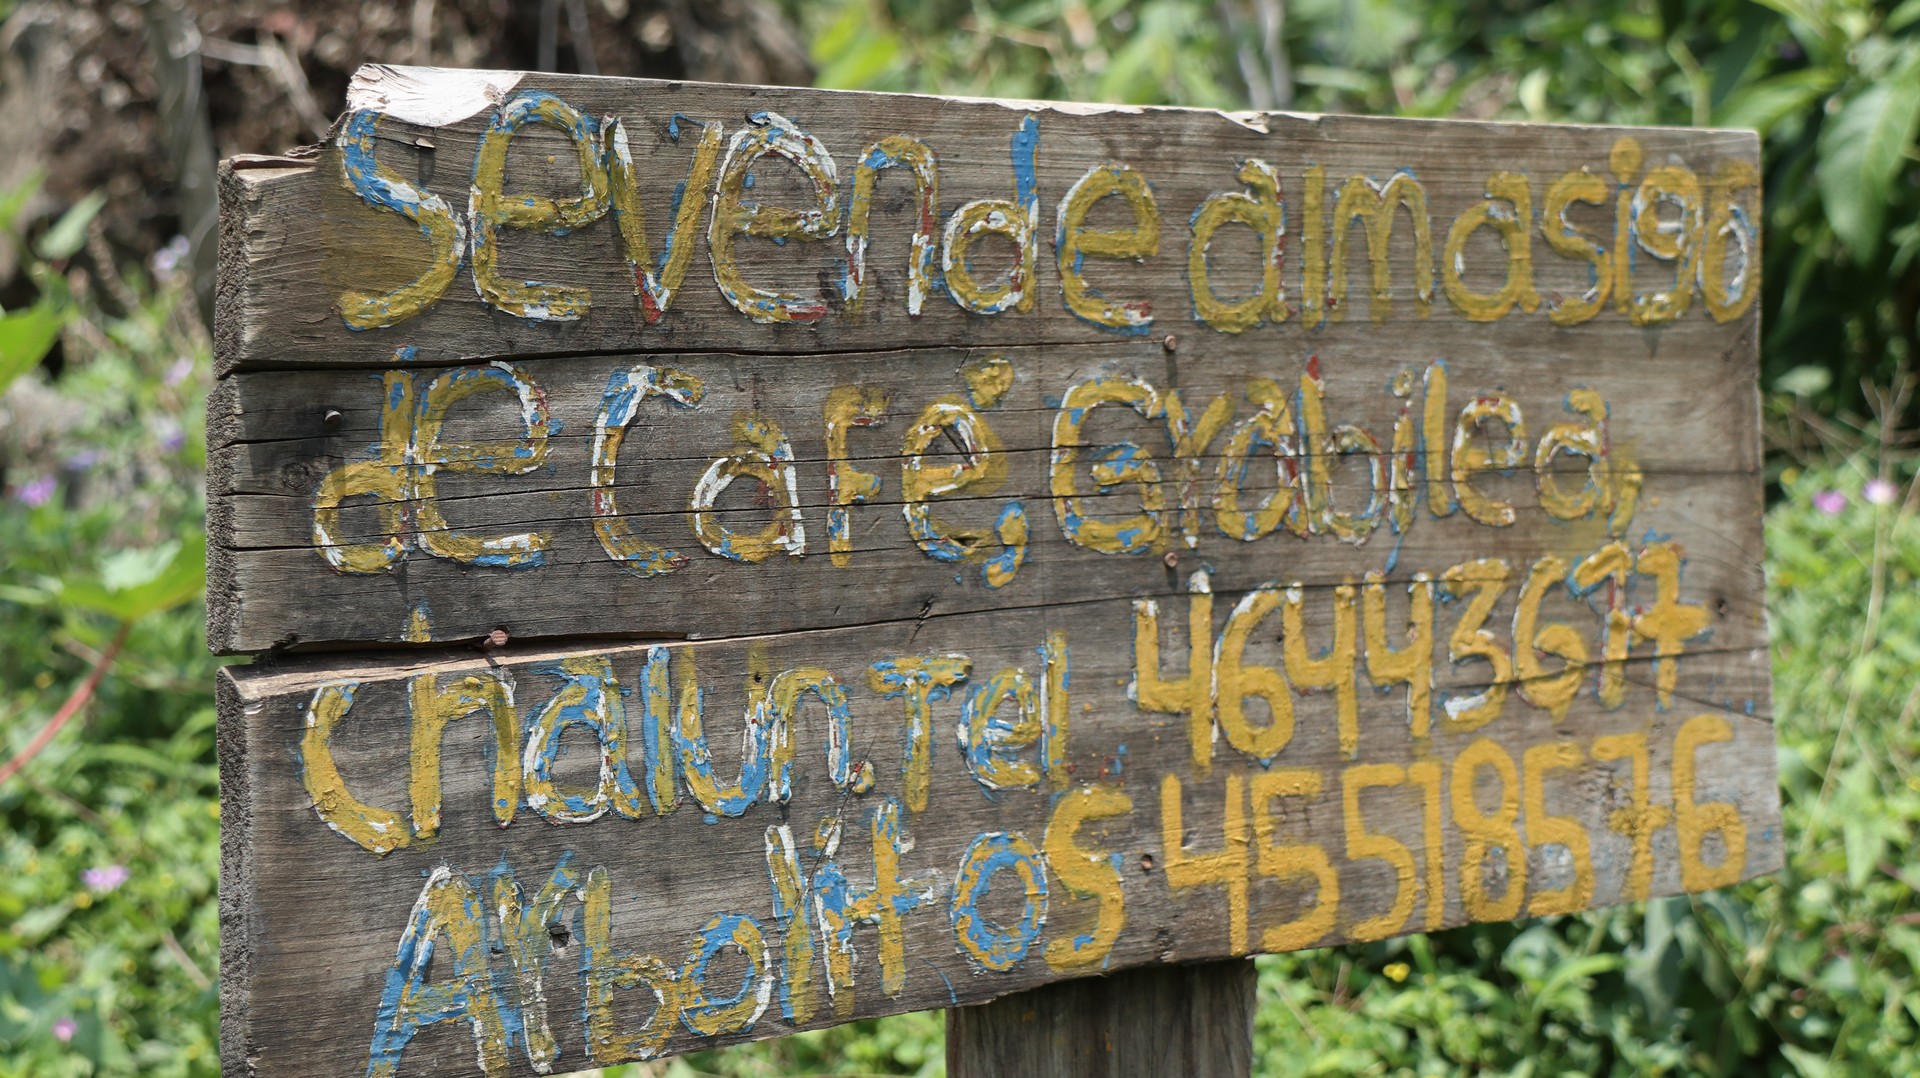 se vende almasigo
de Café, Grabilea,
chalun. Tel 46443677
Arbolitos 45518576